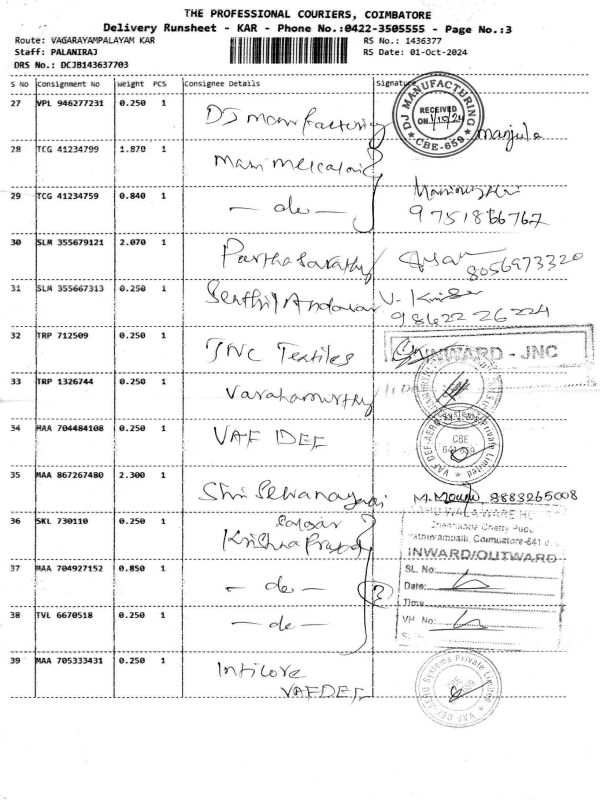 THE PROFESSIONAL COURIERS, COIMBATORE
Delivery Runsheet - KAR - Phone No.:0422-3505555 - Page No.:3
Route: VAGARAYAMPALAYAM KAR
RS No.: 1436377
Staff: PALANIRAJ
RS Date: 01-Oct-2024
DRS No.: DCJB143637703
S No Consignment No Weight PCS Consignee Details Signature
27 VPL 946277231 0.250 1 DJ Manufacturing
DJ MANUFACTURING
RECEIVED
ON 1/10/24
CBE-659
Manjula
28 TCG 41234799 1.870 1
29 TCG 41234759 0.840 1 — do —
9751866767
30 SLM 355679121 2.070 1 Parthasarathy
8056973320
31 SLM 355667313 0.250 1 Senthil Andavar
9862226224
32 TRP 712509 0.250 1 JNC Textiles
INWARD - JNC
33 TRP 1326744 0.250 1 Varahamurthy
34 MAA 704484108 0.250 1 VAF DEF
VAF DEF-AERO Systems Private Limited
CBE
641 659
35 MAA 867267480 2.300 1 Shri Selvanayagi
M. 9883265008
36 SKL 730110 0.250 1
Krishna Prasad
WARE
Chennappa Chetty Pudur
Coimbatore-641
INWARD/OUTWARD
37 MAA 704927152 0.850 1 — do —
SL. No:
Date:
Time
38 TVL 6670518 0.250 1 — do —
VH No:
39 MAA 705333431 0.250 1 Inticore
VAFDEF
VAF DEF-AERO Systems Private Limited
CBE
659